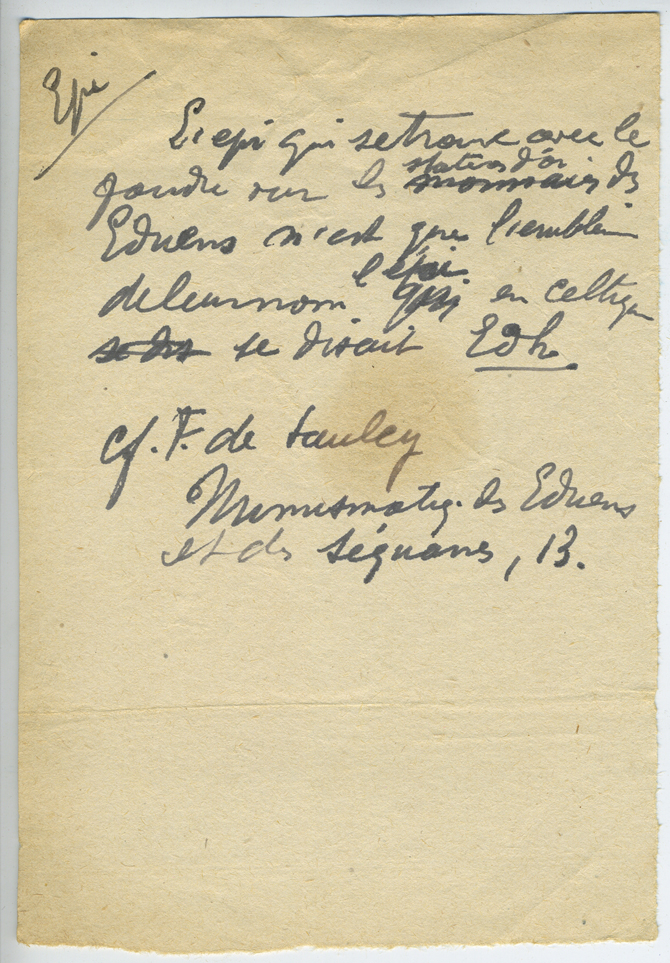 Epi
L'epi qui se trouve avec le
foudre sur les statères d'or monnaies des
Eduens n'est que l'emblem
de leur nom l'épi qui en celtique
se dis se disait Edh.
cf. F. de Saulcy
Numismatiq. des Eduens
et des Séquanes, 13.